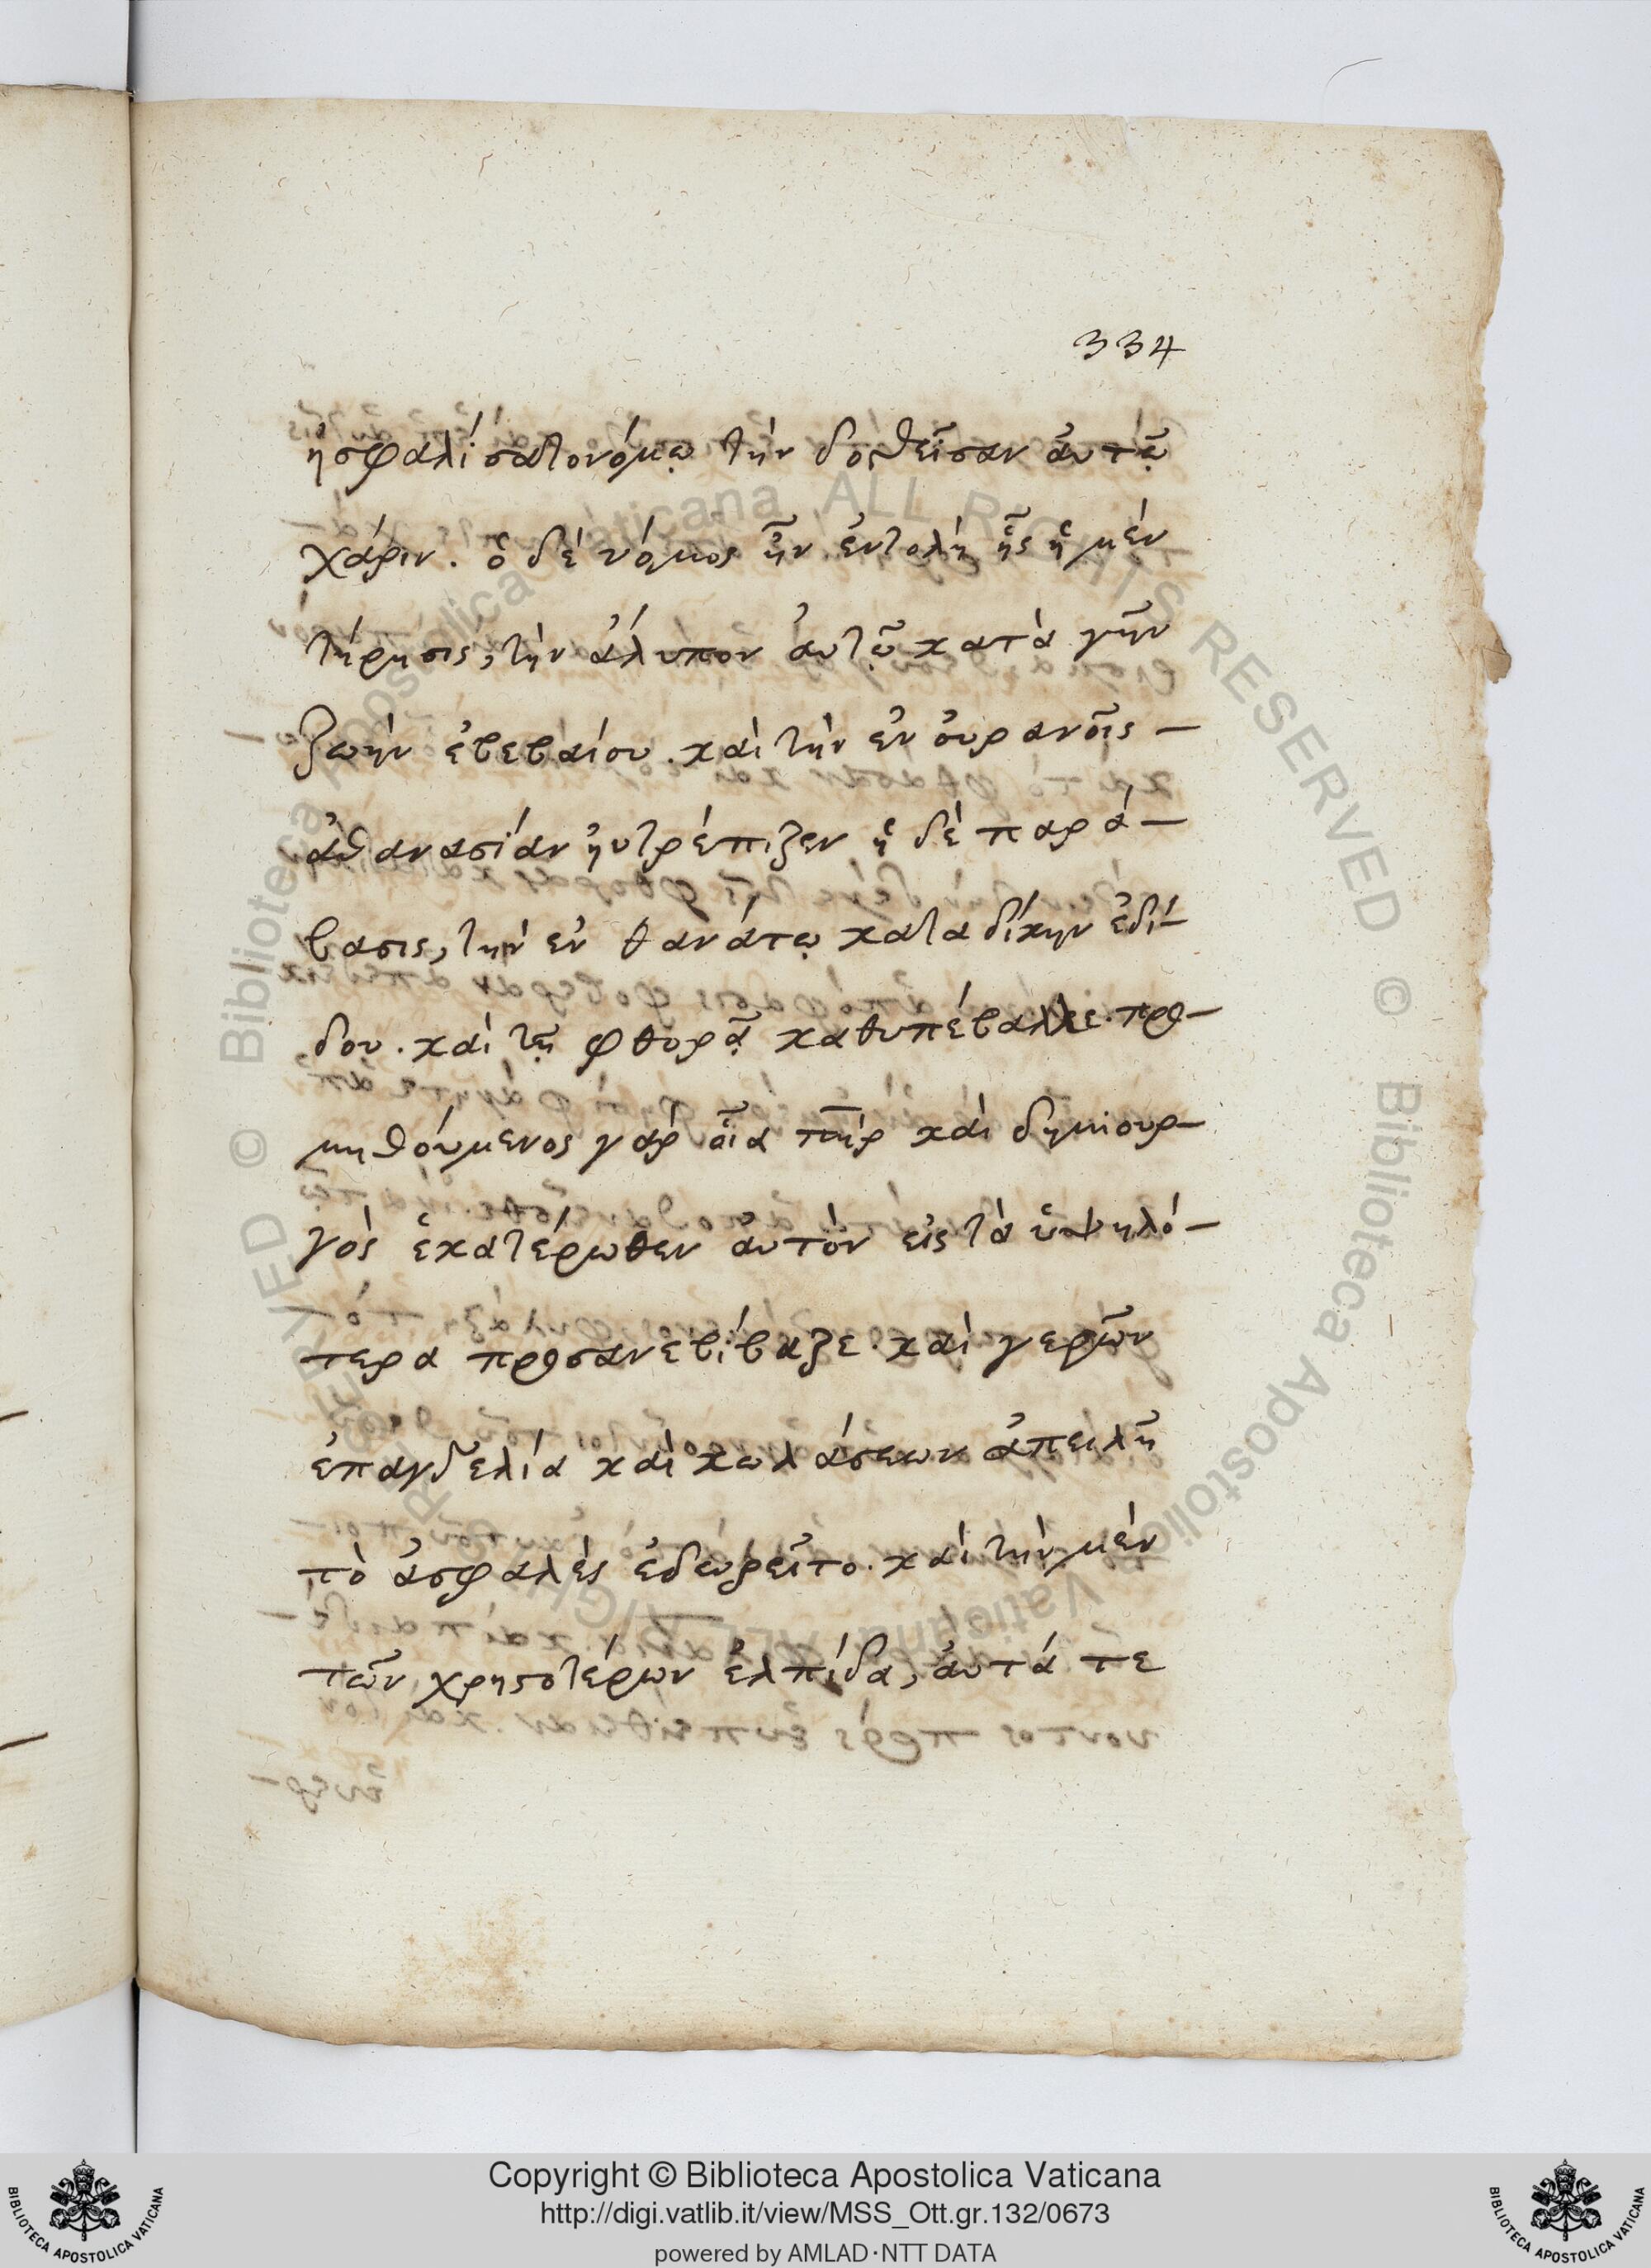 334
ἠσφαλίσατο νόμῳ τὴν δοθεῖσαν αὐτῷ
χάριν. ὁ δὲ νόμος ἦν ἐντολὴ ἧς ἡ μὲν
τήρησις, τὴν ἄλυπον αὐτῷ κατὰ γῆν
ζωὴν ἐβεβαίου. καὶ τὴν ἐν οὐρανοῖς –
ἀθανασίαν ηὐτρέπιζεν ἡ δὲ παρά –
βασις, τὴν ἐν θανάτῳ καταδίκην ἐδί –
δου. καὶ τῇ φθορᾷ καθυπέβαλλε. προ –
μηθούμενος γὰρ οἷα πηρ καὶ δημιουρ –
γὸς ἑκατέρωθεν αὐτὸν εἰς τὰ ὑψηλό –
τερα προσανεβίβαζε. καὶ γερῶν
ἐπαγγελία καὶ κολάσεων ἀπειλῇ
τὸ ἀσφαλὲς ἐδωρεῖτο. καὶ τὴν μὲν
τῶν χρηστοτέρων ἐλπίδα, αὐτά τε
Copyright © Biblioteca Apostolica Vaticana
http://digi.vatlib.it/view/MSS_Ott.gr.132/0673
powered by AMLAD·NTT DATA
BIBLIOTECA APOSTOLICA VATICANA
BIBLIOTECA APOSTOLICA VATICANA
© Biblioteca Apostolica Vaticana ALL RIGHTS RESERVED © Biblioteca Apostolica Vaticana ALL RIGHTS RESERVED